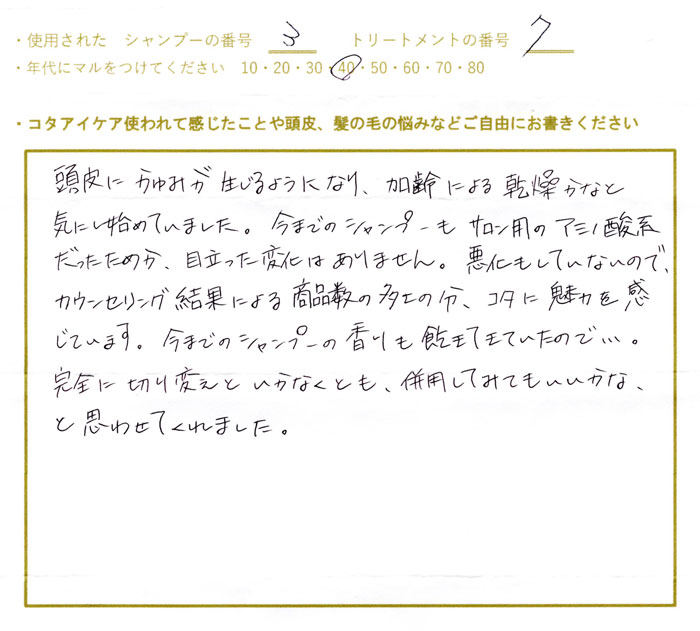 ・使用された シャンプーの番号 3 トリートメントの番号 7
・年代にマルをつけてください 10・20・30・40・50・60・70・80
・コタアイケア使われて感じたことや頭皮、髪の毛の悩みなどご自由にお書きください
頭皮にかゆみが生じるようになり、加齢による乾燥かなと
気にし始めていました。今までのシャンプーもサロン用のアミノ酸系
だったためか、目立った変化はありません。悪化もしていないので、
カウンセリング結果による商品数の多さの分、コタに魅力を感
じています。今までのシャンプーの香りも飽きてきていたので…。
完全に切り変えといかなくとも、併用してみてもいいかな、
と思わせてくれました。